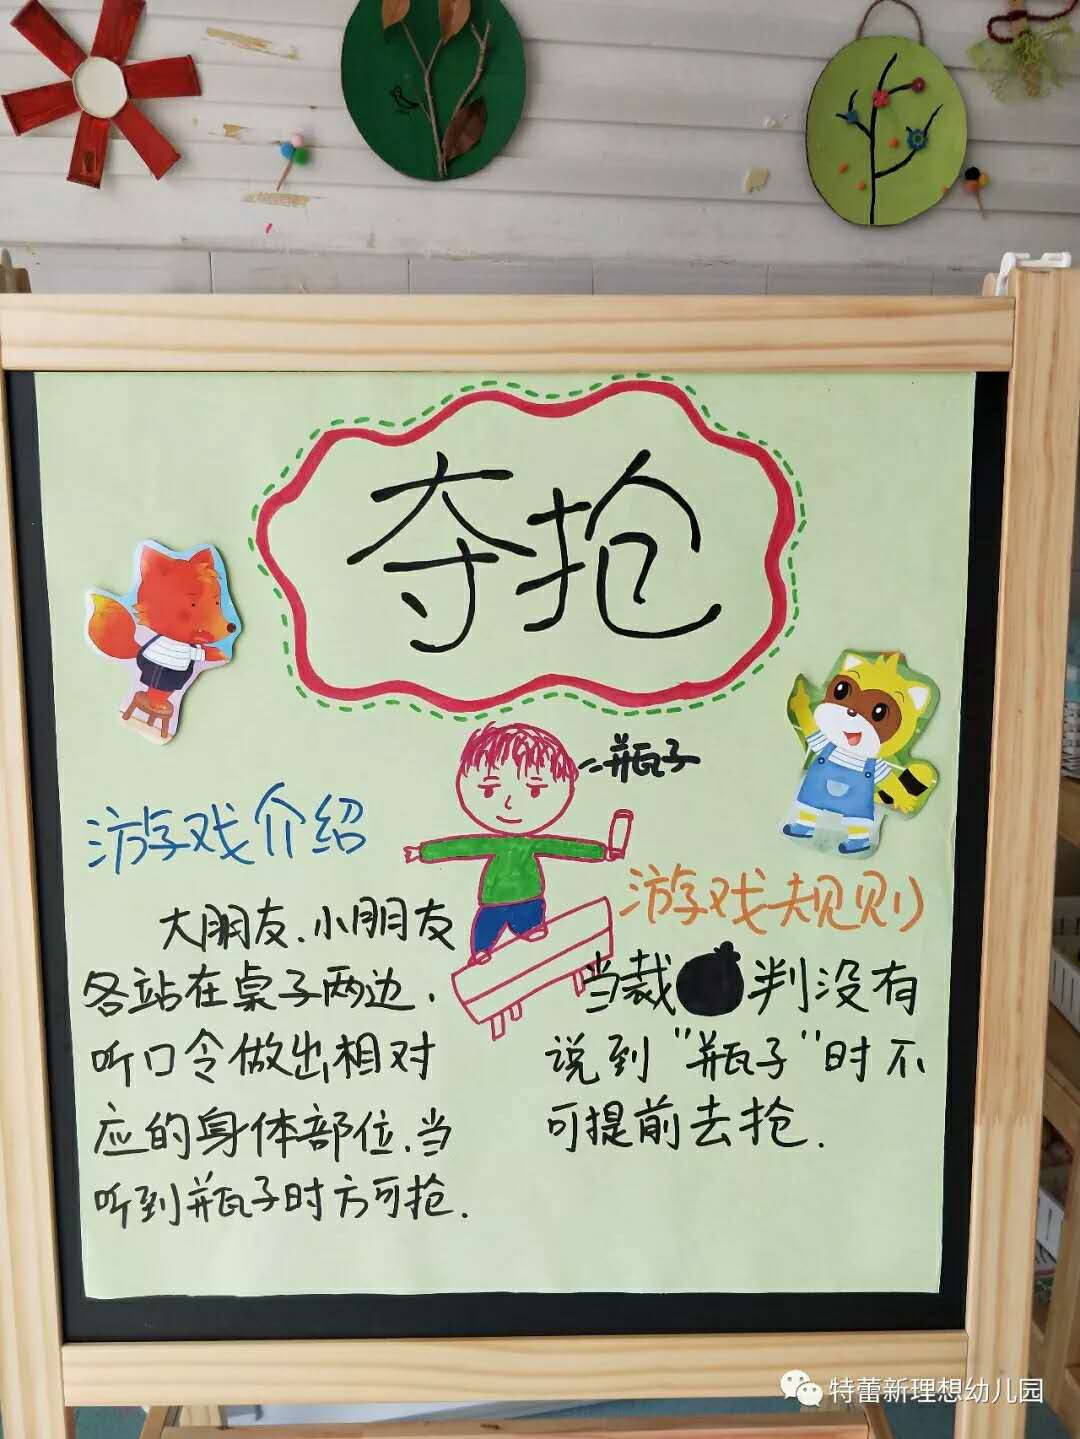 夺抢
瓶子
游戏介绍
大朋友、小朋友
各站在桌子两边，
听口令做出相对
应的身体部位，当
听到瓶子时方可抢.
游戏规则
当裁判没有
说到"瓶子"时不
可提前去抢.
特蕾新理想幼儿园